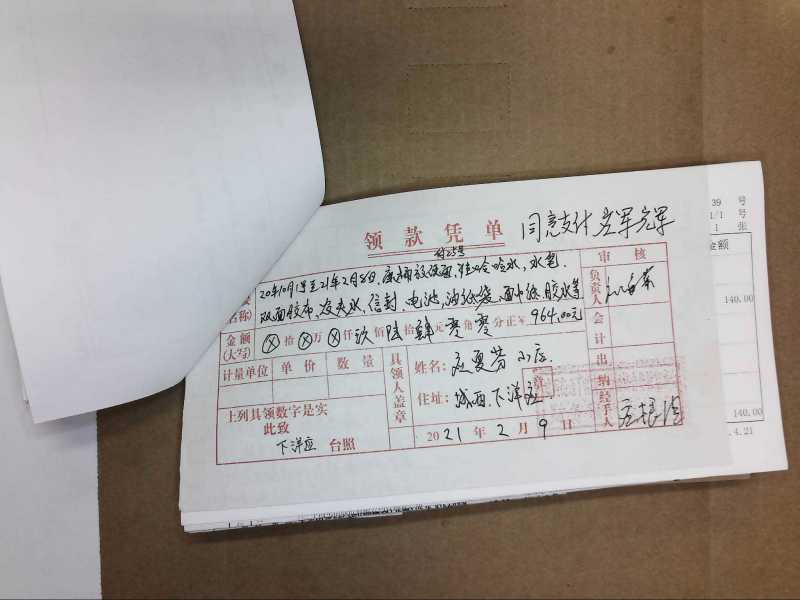 领款凭单
付25号
同意支付
20年10月1号至21年2月8日,康师傅方便面,娃哈哈水,水笔.
名称
双面胶布,发夹水,信封,电池,油纸袋,面巾纸,胶水等
金额
(大写)
ⓧ拾ⓧ万ⓧ仟玖佰陆拾肆元零角零分正¥964.00元
计量单位 单价 数量
具领人盖章
姓名:应夏芳小店.
住址:城西.下洋应.
上列具领数字是实
此致
下洋应 台照
2021年2月9日
审核
负责人
会计
出纳
经手人
39 号
1/1 号
1 张
金额
140.00
140.00
.4.21